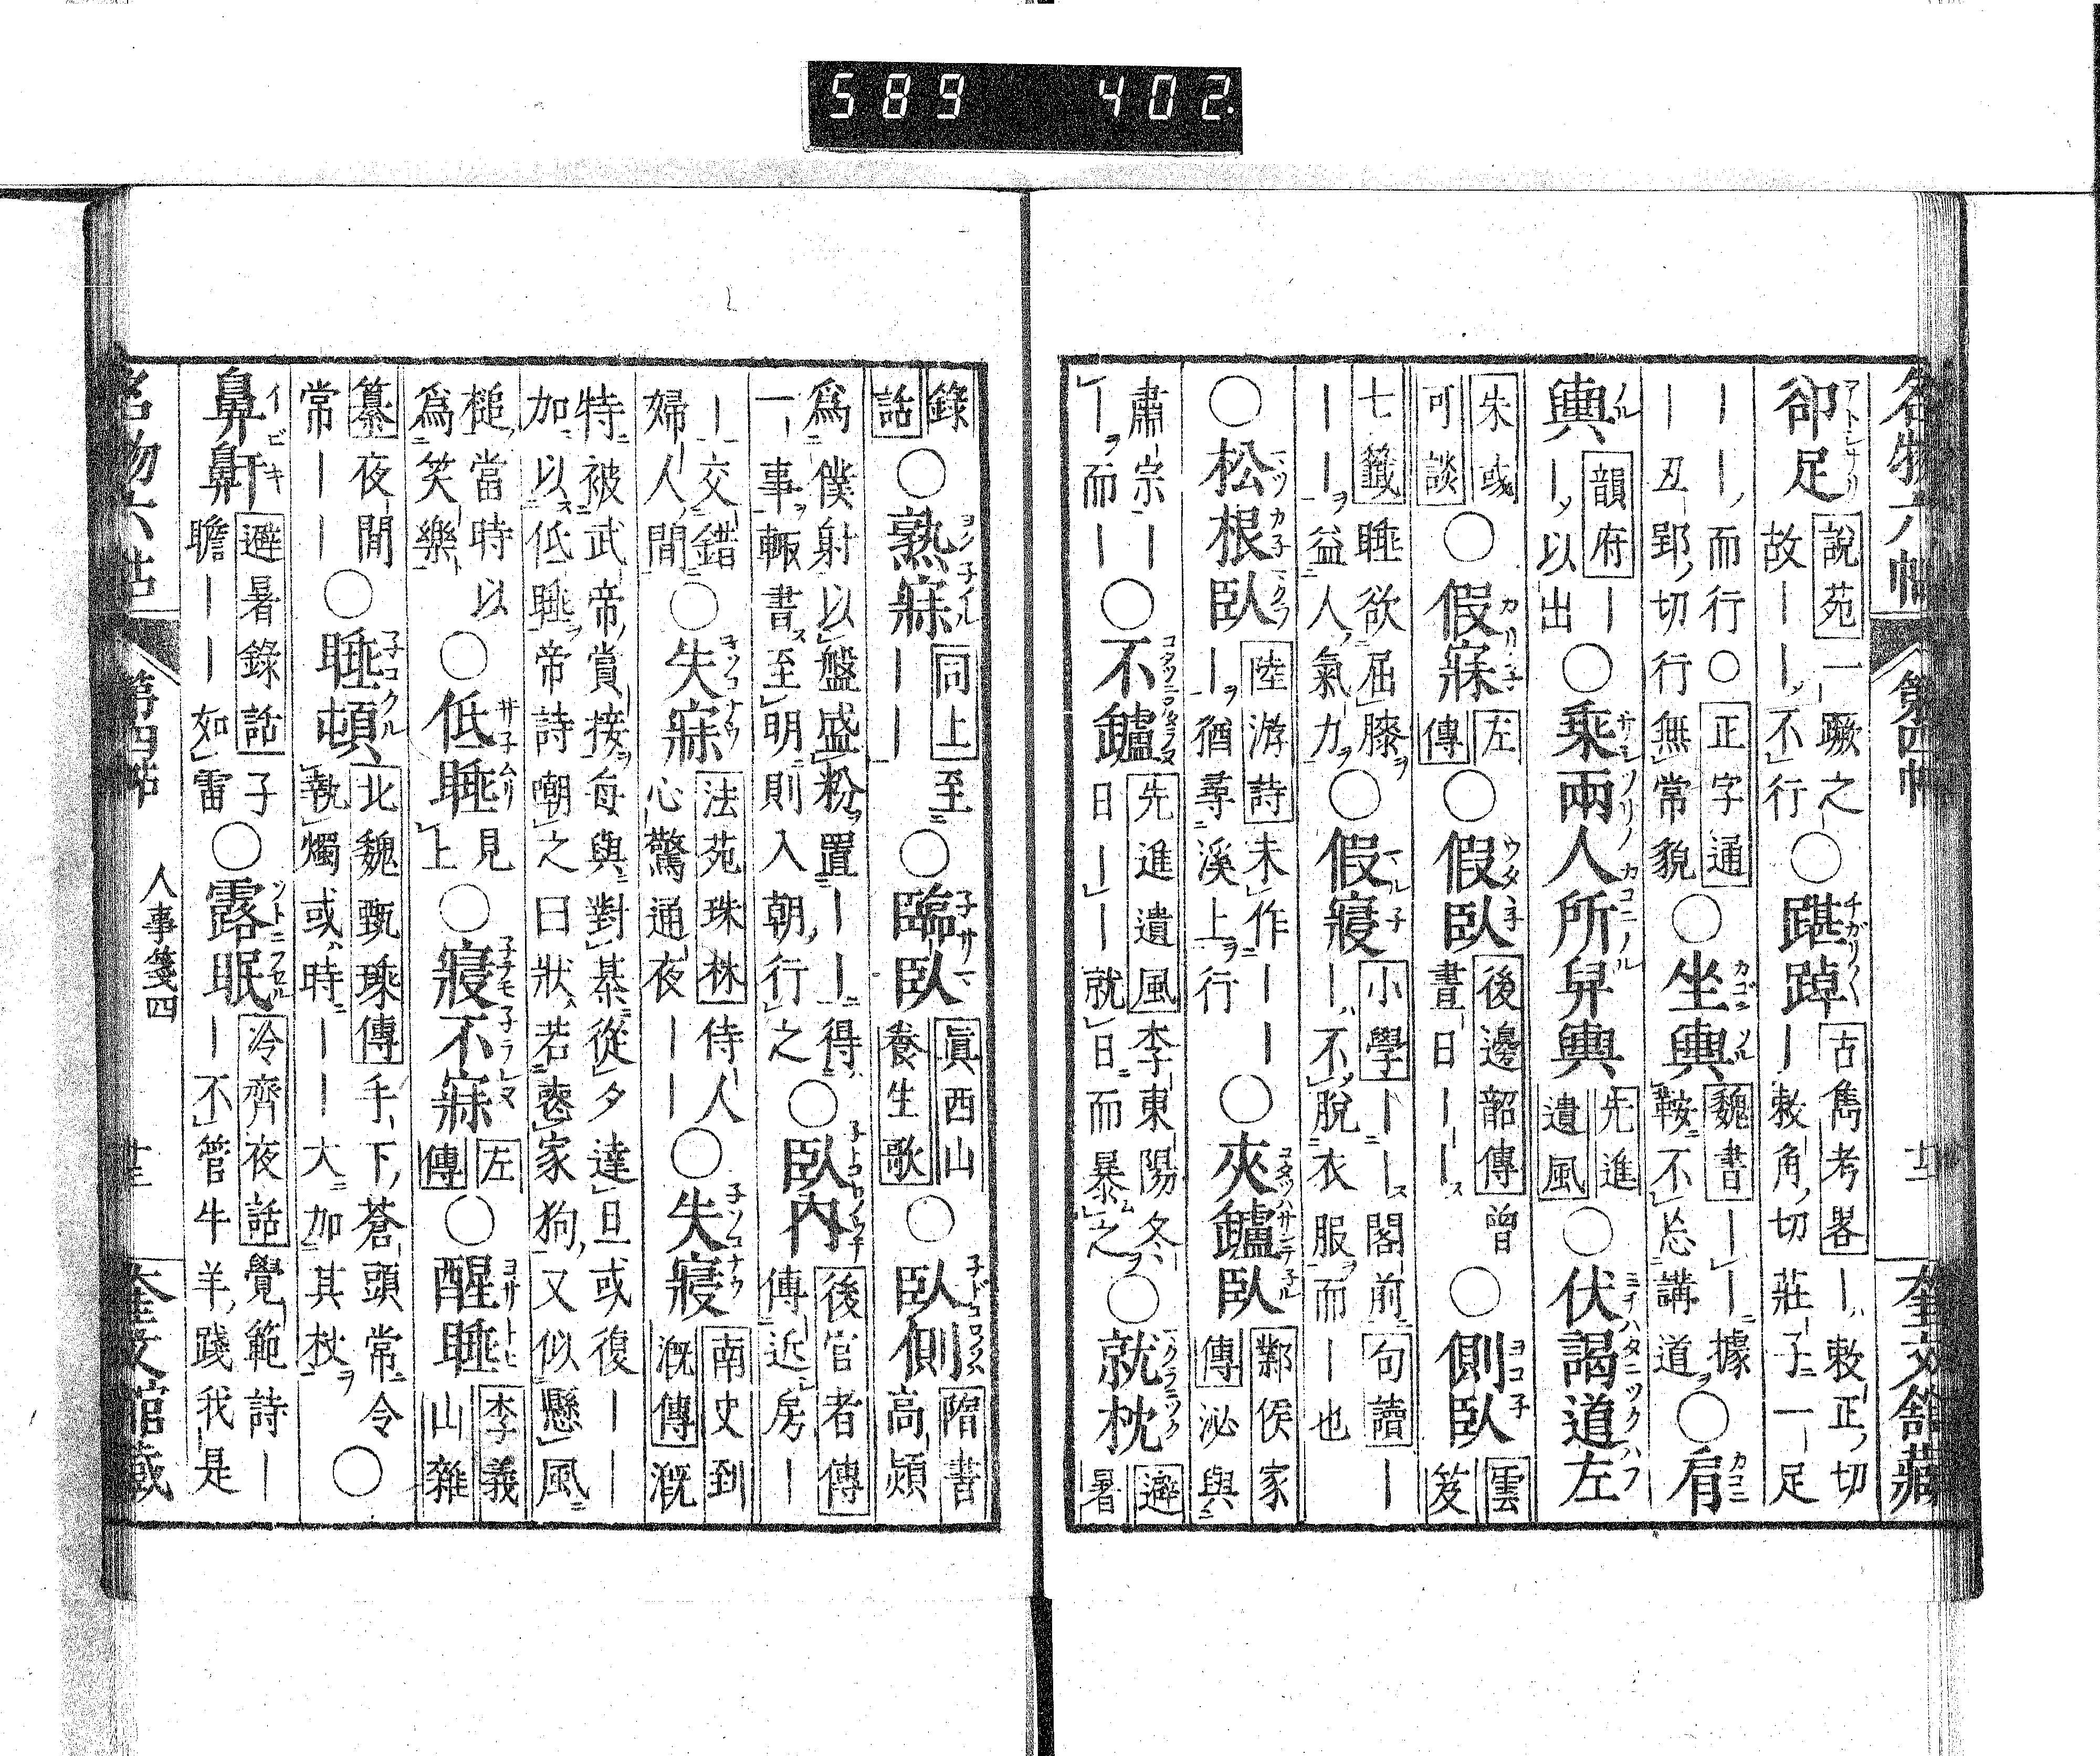 589 402.
名物六帖 第四帖 十二 奎文舘藏
卻足 説苑 一蹶之
故｜｜不行
○踸踔 古雋考畧｜敕正切
｜敕角切莊子一足
｜｜而行○正字通
｜丑郢切行無常貌
○坐輿 魏書｜｜據
鞍不忘講道
○肩
輿 韻府｜
｜以出
○乘兩人所舁輿 先進
遺風
○伏謁道左
朱彧
可談
○假寐 左
傳
○假臥 後邊韶傳 曾
晝日｜｜
○側臥 雲
笈
七籤 睡欲屈膝
｜｜益人氣力
○假寢 小學｜｜閣前 句讀｜
｜不脫衣服而｜也
○松根臥 陸游詩 未作｜｜
｜猶尋溪上行
○夾鑪臥 鄴侯家
傳 泌與
肅宗｜｜
｜而｜｜
○不鑪 先進遺風 李東陽冬
日｜｜就日而暴之
○就枕 避
暑
錄
話
○熟寐 同上 至
｜｜
○臨臥 眞西山
養生歌
○臥側 隋書
高熲
爲僕射以盤盛粉置｜｜得
一事輙書至明則入朝行之
○臥內 後宦者傳
傳近房｜
｜交錯
婦人間
○失寐 法苑珠林 侍人
心驚通夜｜｜
○失寢 南史到
溉傳 溉
特被武帝賞接每與對棊從夕達旦或復｜｜
加以低睡帝詩嘲之曰狀若喪家狗又似懸風
槌當時以
爲笑樂
○低睡 見
上
○寢不寐 左
傳
○醒睡 李義
山雜
纂 夜間
常｜｜
○睡頓 北魏甄琛傳 手下蒼頭常令
執燭或時｜｜大加其杖
○
鼻鼾 避暑錄話 子
瞻｜｜如雷
○露眠 冷齋夜話 覺範詩｜
｜不管牛羊踐我是
名物六帖 第四帖 人事箋四 十三 奎文舘藏